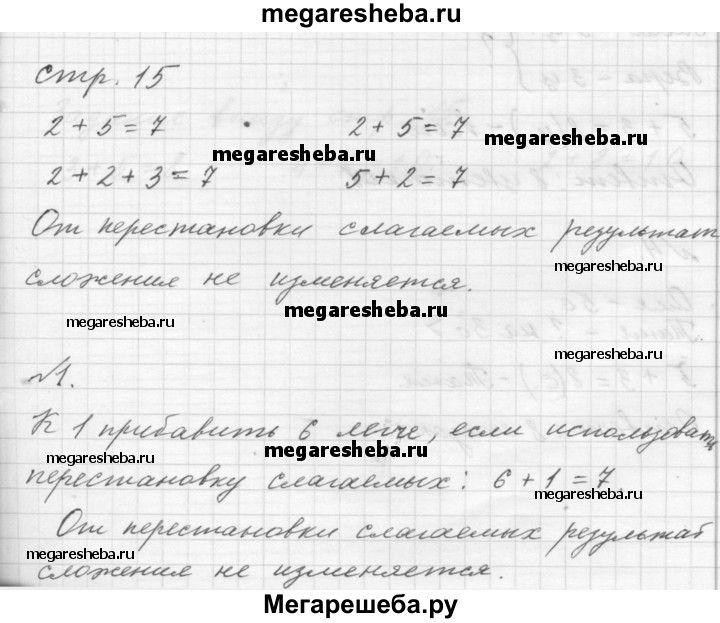 megaresheba.ru
стр. 15
2 + 5 = 7 2 + 5 = 7
megaresheba.ru
megaresheba.ru
2 + 2 + 3 = 7 5 + 2 = 7
От перестановки слагаемых результат
megaresheba.ru
сложения не изменяется.
megaresheba.ru
megaresheba.ru
№1.
К 1 прибавить 6 легче, если использовать
megaresheba.ru
перестановку слагаемых: 6 + 1 = 7.
megaresheba.ru
От перестановки слагаемых результат
megaresheba.ru
сложения не изменяется.
Мегарешеба.ру